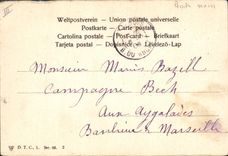 Weltpostverein – Union postale universelle
Postkarte – Carte postale
Cartolina postale – Post-card – Briefkart
Tarjeta postal – Dopisnice – Levelező-Lap
Monsieur Marius Bazill
Campagne Bech
Aux Aygalades
Banlieue Marseille
D. T. C., L. Ser.